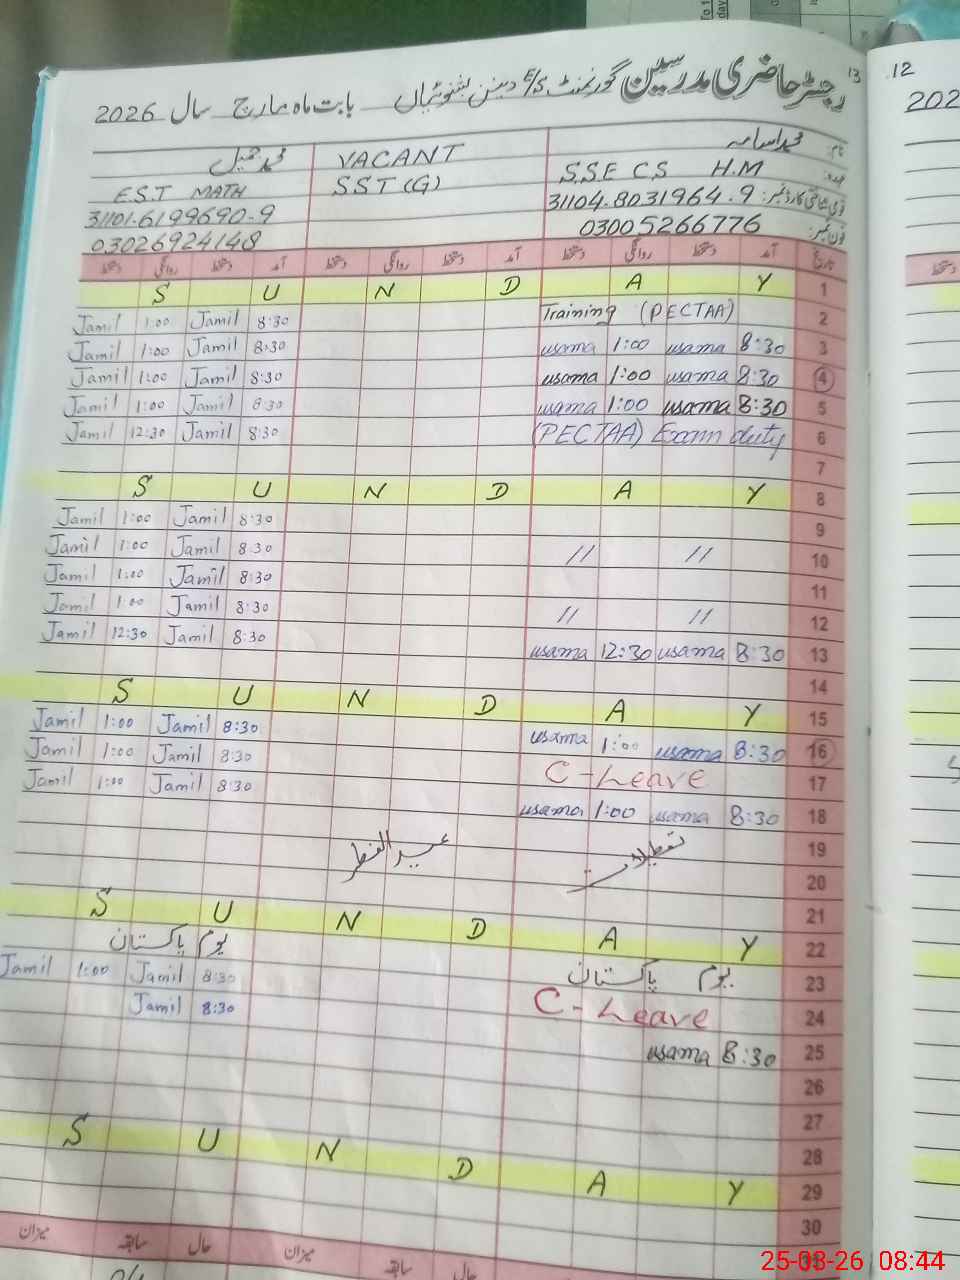 رجسٹر حاضری مدرسین گورنمنٹ E/S بابت ماہ مارچ سال 2026
13
12
202
نام: محمد اسامہ VACANT محمد جمیل
عہدہ: S.S.E C.S H.M SST (G) E.S.T MATH
قومی شناختی کارڈ نمبر: 31104-8031964-9 31101-6199690-9
فون نمبر: 03005266776 03026924148
تاریخ آمد دستخط روانگی دستخط آمد دستخط روانگی دستخط آمد دستخط روانگی دستخط
S U N D A Y 1
Jamil 1:00 Jamil 8:30 Training (PECTAA) 2
Jamil 1:00 Jamil 8:30 usama 1:00 usama 8:30 3
Jamil 1:00 Jamil 8:30 usama 1:00 usama 8:30 4
Jamil 1:00 Jamil 8:30 usama 1:00 usama 8:30 5
Jamil 12:30 Jamil 8:30 (PECTAA) Exam duty 6
7
S U N D A Y 8
Jamil 1:00 Jamil 8:30 9
Jamil 1:00 Jamil 8:30 // // 10
Jamil 1:00 Jamil 8:30 11
Jamil 1:00 Jamil 8:30 // // 12
Jamil 12:30 Jamil 8:30 usama 12:30 usama 8:30 13
14
S U N D A Y 15
Jamil 1:00 Jamil 8:30 usama 1:00 usama 8:30 16
Jamil 1:00 Jamil 8:30 C-Leave 17
Jamil 1:00 Jamil 8:30 usama 1:00 usama 8:30 18
تعطیلات عید الفطر 19
20
21
S U N D A Y 22
یوم پاکستان یوم پاکستان 23
Jamil 1:00 Jamil 8:30 C-Leave 24
Jamil 8:30 usama 8:30 25
26
27
28
S U N D A Y 29
30
حال سابقہ میزان حال سابقہ میزان
25-03-26 08:44